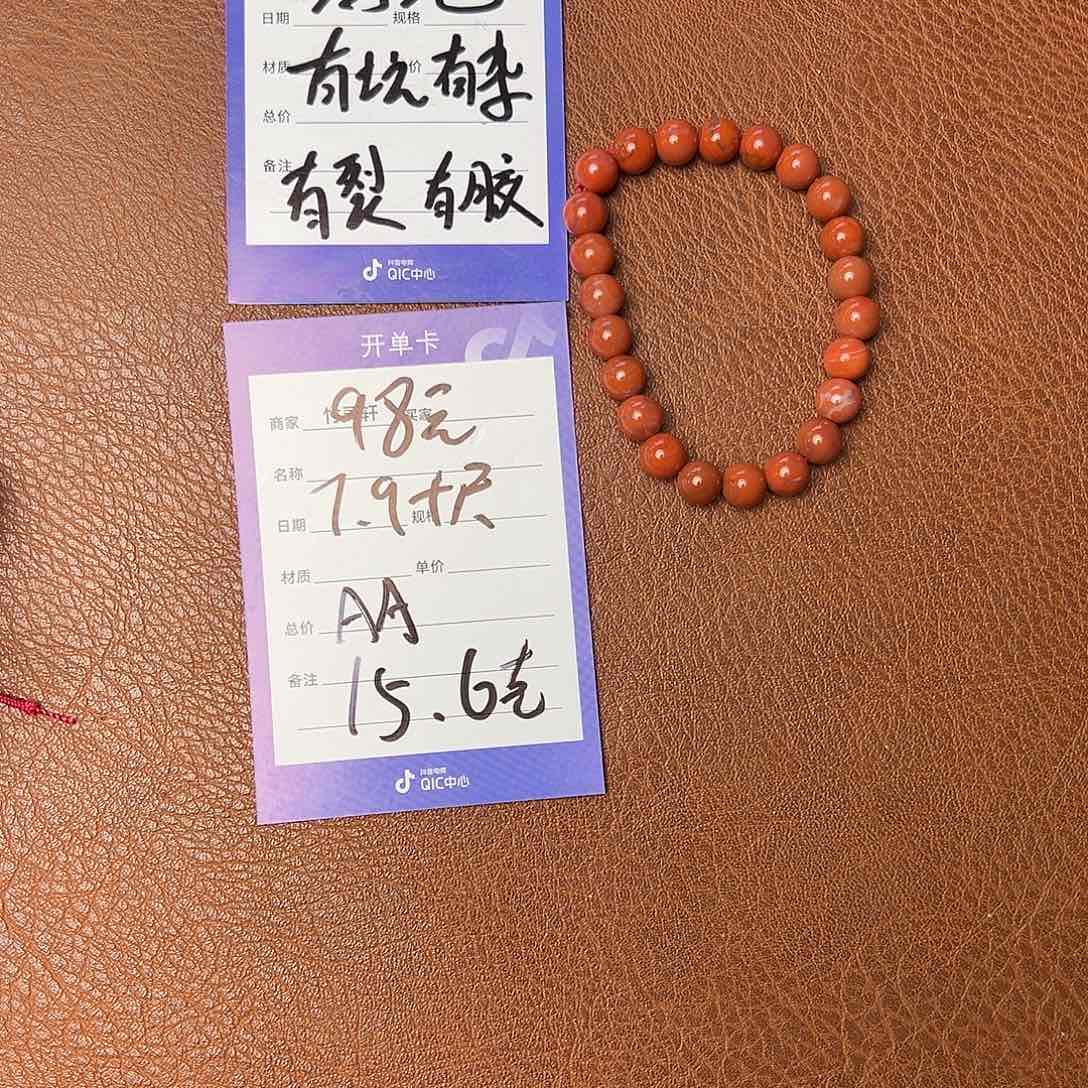 日期 规格
材质 有坑有杂 价
总价
备注 有裂 有胶
抖音电商
QIC中心
开单卡
商家 98元 买家
名称
日期 7.9卡尺 规格
材质 单价
总价 AA
备注 15.6克
抖音电商
QIC中心